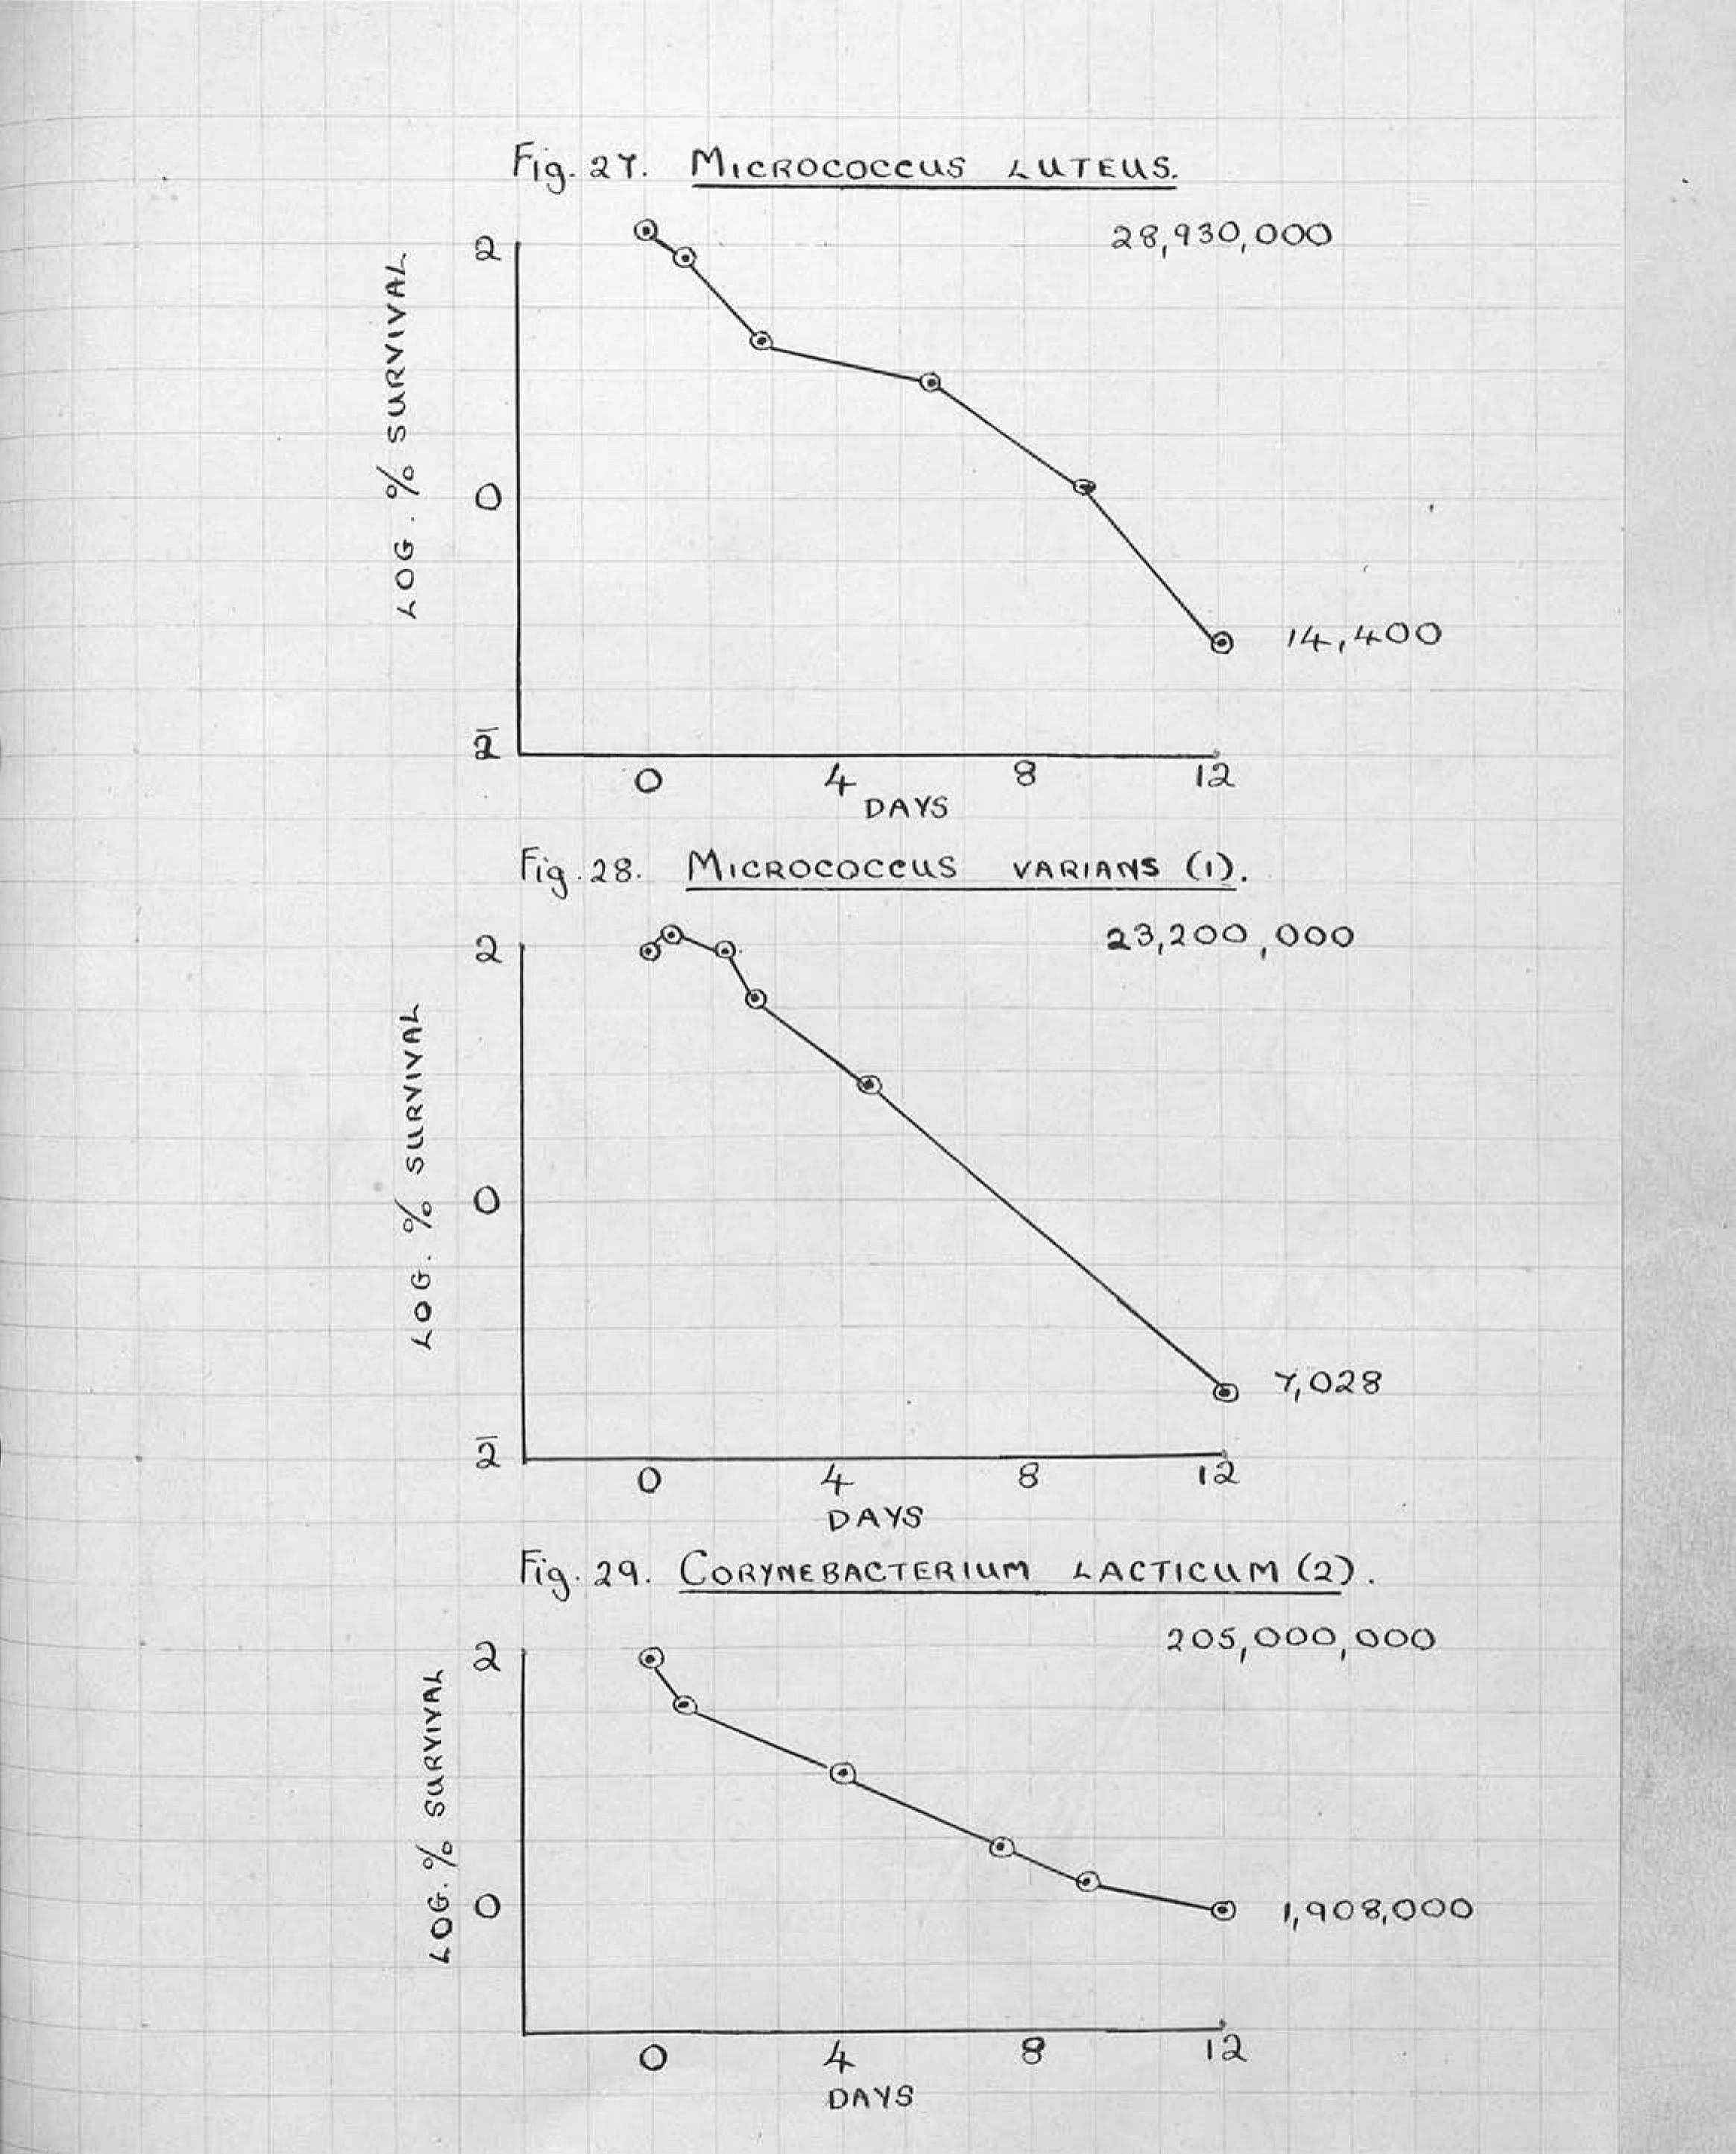 Fig. 27. MICROCOCCUS LUTEUS.
28,930,000
LOG. % SURVIVAL
2
0
2̄
14,400
0 4 8 12
DAYS
Fig. 28. MICROCOCCUS VARIANS (1).
23,200,000
LOG. % SURVIVAL
2
0
2̄
7,028
0 4 8 12
DAYS
Fig. 29. CORYNEBACTERIUM LACTICUM (2).
205,000,000
LOG. % SURVIVAL
2
0
1,908,000
0 4 8 12
DAYS